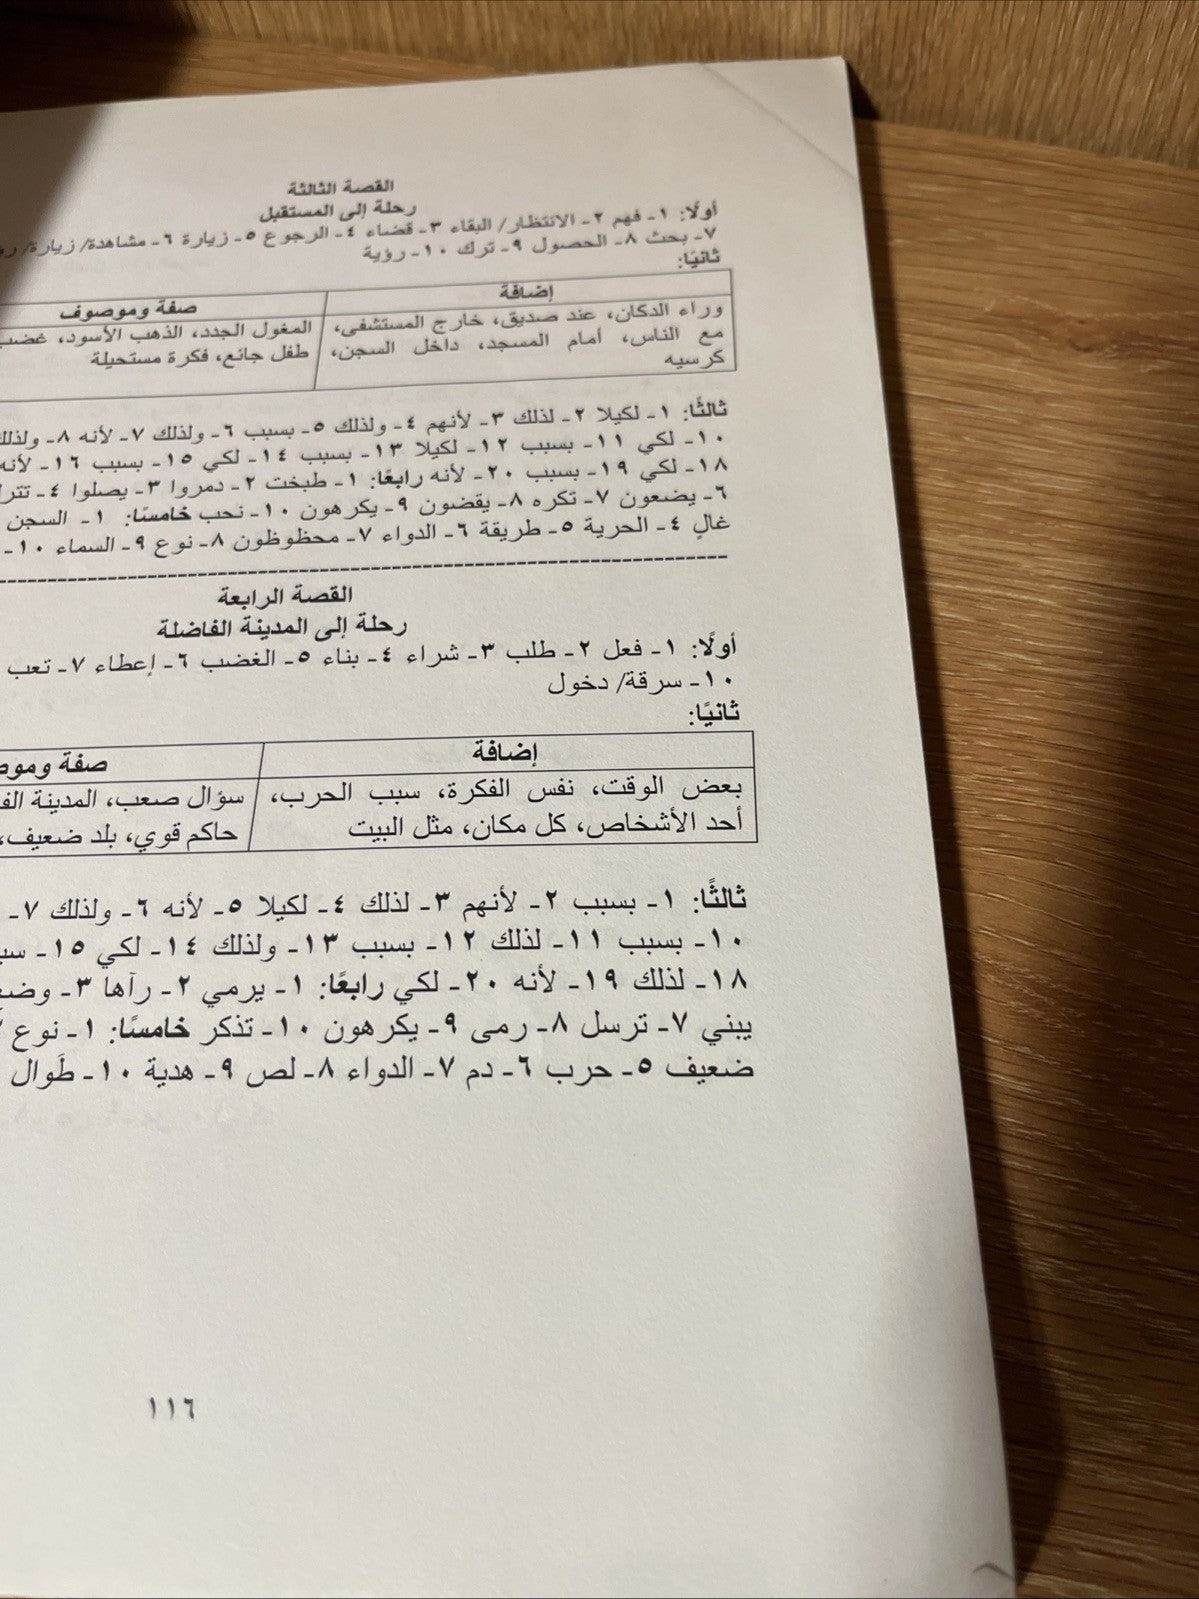 القصة الثالثة
رحلة إلى المستقبل
أولًا: ١- فهم ٢- الانتظار/ البقاء ٣- قضاء ٤- الرجوع ٥- زيارة ٦- مشاهدة/ زيارة/
٧- بحث ٨- الحصول ٩- ترك ١٠- رؤية
ثانيًا:
إضافة
صفة وموصوف
وراء الدكان، عند صديق، خارج المستشفى،
مع الناس، أمام المسجد، داخل السجن،
كرسيه
المغول الجدد، الذهب الأسود،
طفل جائع، فكرة مستحيلة
ثالثًا: ١- لكيلا ٢- لذلك ٣- لأنهم ٤- ولذلك ٥- بسبب ٦- ولذلك ٧- لأنه ٨- ولذلك
١٠- لكي ١١- بسبب ١٢- لكيلا ١٣- بسبب ١٤- لكي ١٥- بسبب ١٦- لأنه
١٨- لكي ١٩- بسبب ٢٠- لأنه رابعًا: ١- طبخت ٢- دمروا ٣- يصلوا ٤-
٦- يضعون ٧- تكره ٨- يقضون ٩- يكرهون ١٠- نحب خامسًا: ١- السجن
غالٍ ٤- الحرية ٥- طريقة ٦- الدواء ٧- محظوظون ٨- نوع ٩- السماء ١٠-
القصة الرابعة
رحلة إلى المدينة الفاضلة
أولًا: ١- فعل ٢- طلب ٣- شراء ٤- بناء ٥- الغضب ٦- إعطاء ٧- تعب
١٠- سرقة/ دخول
ثانيًا:
إضافة
صفة
بعض الوقت، نفس الفكرة، سبب الحرب،
أحد الأشخاص، كل مكان، مثل البيت
سؤال صعب، المدينة
حاكم قوي، بلد ضعيف،
ثالثًا: ١- بسبب ٢- لأنهم ٣- لذلك ٤- لكيلا ٥- لأنه ٦- ولذلك ٧-
١٠- بسبب ١١- لذلك ١٢- بسبب ١٣- ولذلك ١٤- لكي ١٥-
١٨- لذلك ١٩- لأنه ٢٠- لكي رابعًا: ١- يرمي ٢- رآها ٣-
يبني ٧- ترسل ٨- رمى ٩- يكرهون ١٠- تذكر خامسًا: ١- نوع
ضعيف ٥- حرب ٦- دم ٧- الدواء ٨- لص ٩- هدية ١٠- طَوال
١١٦